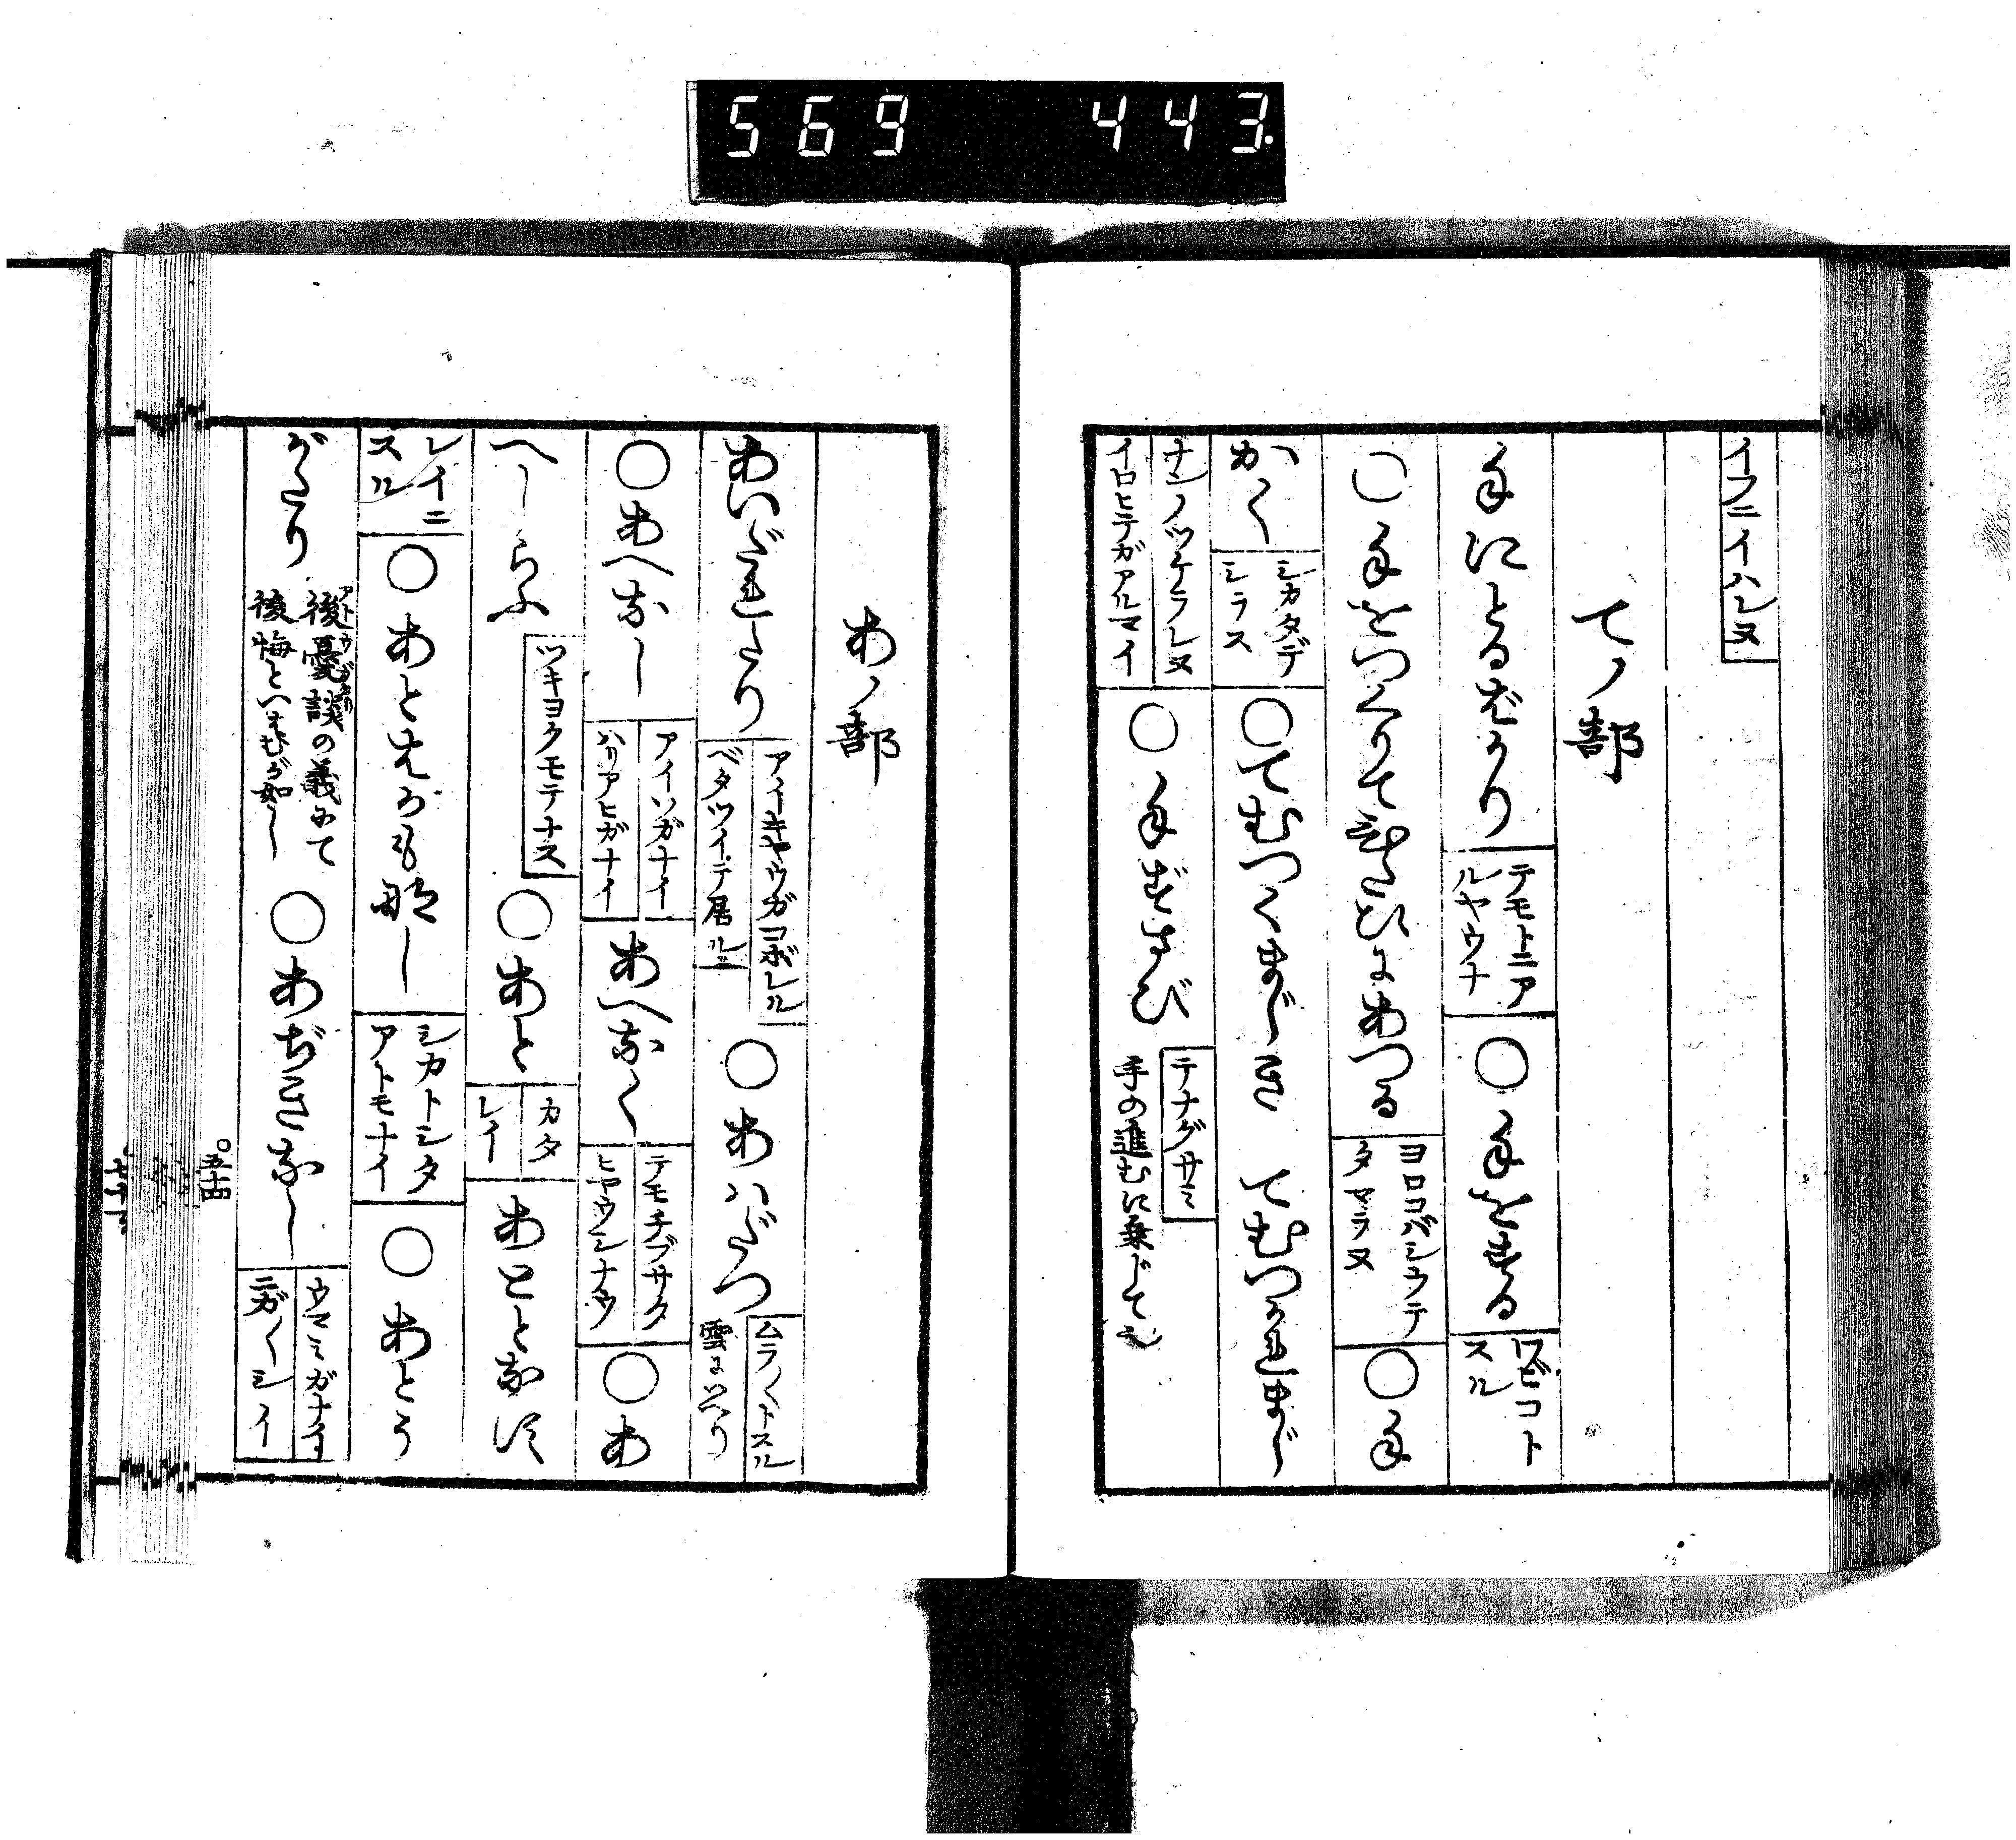 569 443.
イフニイハレヌ
てノ部
手にとるばかり テモトニア ルヤウナ ○手をする ワビコト スル
○手をつくりてひたひにあつる ヨロコバシウテ タマラヌ ○手
かく シカタデ シラス ○てむつくまじき てむつるまじ
ナンノツケラレヌ イロヒテガアルマイ ○手ずさび テナグサミ 手の進むに乗じて也
あノ部
あいだれたり アイキヤウガコボレル ベタツイテ居ル ○あハだつ ムラ〱トスル 雲にいへり
○あへなし アイソガナイ ハリアヒガナイ あへなく テモチブサタ ヒヤウシナウ ○あ
へしらふ ツキヨクモテナス ○あと カタ レイ あとゝなす
レイニ スル ○あとはかも那し シカトシタ アトモナイ ○あとう
がたり 後憂談の義にて 後悔といはむが如し ○あぢきなし ウマミガナイ ニガ〱シイ
○五十四